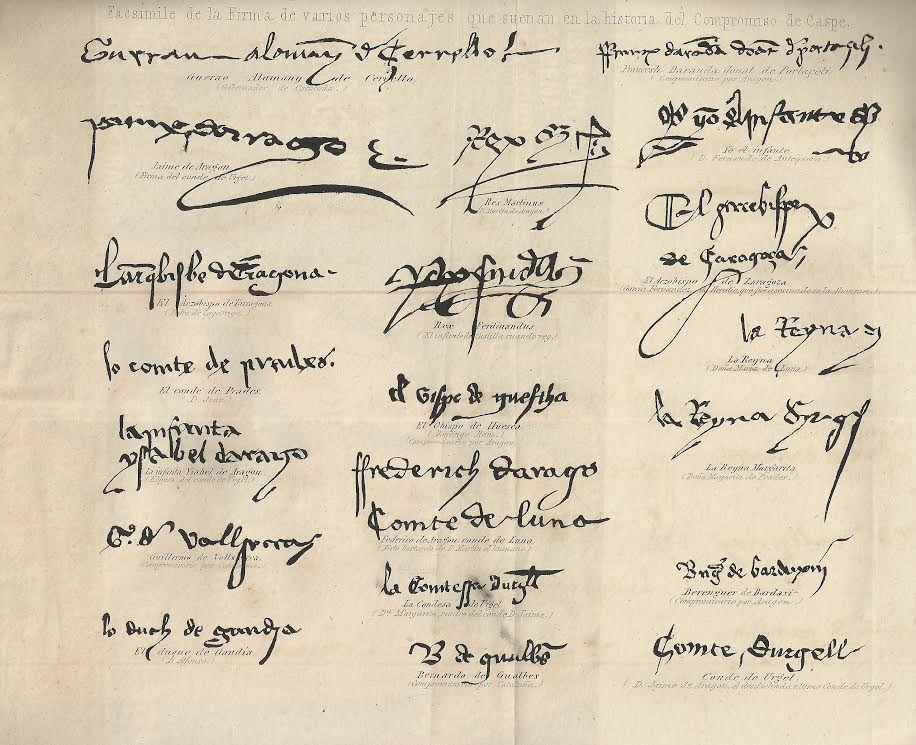 Facsimile de la Firma de varios personajes que suenan en la historia del Compromiso de Caspe.
Guerao Alemany de Cervello
(Gobernador de Cataluña.)
Jaime de Aragon
(Firma del conde de Urgel.)
L'arqbisbe d Tragona
El Arzobispo de Taragona
lo comte de prades.
El conde de Prades.
D. Juan.
la infanta
ysabel darago
La infanta Ysabel de Aragon.
(Esposa del conde de Urgel.)
G. d Vallsecra
Guillermo de Vallseca
(Compromisario por Cataluña.)
lo duch de gandia
El duque de Gandia
(D. Alfonso.)
Rex
Rex Martinus
(D. Martin de Aragon.)
Rex Ferdinandus
(El infante de Castilla cuando rey.)
el bispe de
El Obispo de Huesca
(Compromisario por Aragon.)
ffrederich darago
Comte de luna
Federico de Aragon conde de Luna.
(Hijo bastardo de D. Martin el humano.)
la Comtessa durgll
La Condesa de Urgel
(Dª Margarita, madre del conde D. Jaime.)
B de gualbs
Bernardo de Gualbes
(Compromisario por Cataluña.)
Francesh Daranda donat de Portaceli
(Compromisario por Aragon.)
yo el infante
Yo el infante
(D. Fernando de Antequera.)
El
de Caragoza
El Arzobispo de Zaragoza
la Reyna
La Reyna
(Doña Maria de Luna.)
la Reyna
La Reyna Margarita
(Doña Margarita de Prades.)
de bardaxi
Berenguer de Bardaxi
(Compromisario por Aragon.)
Comte durgell
Conde de Urgel.
(D. Jaime de Aragon, el desdichado último Conde de Urgel.)